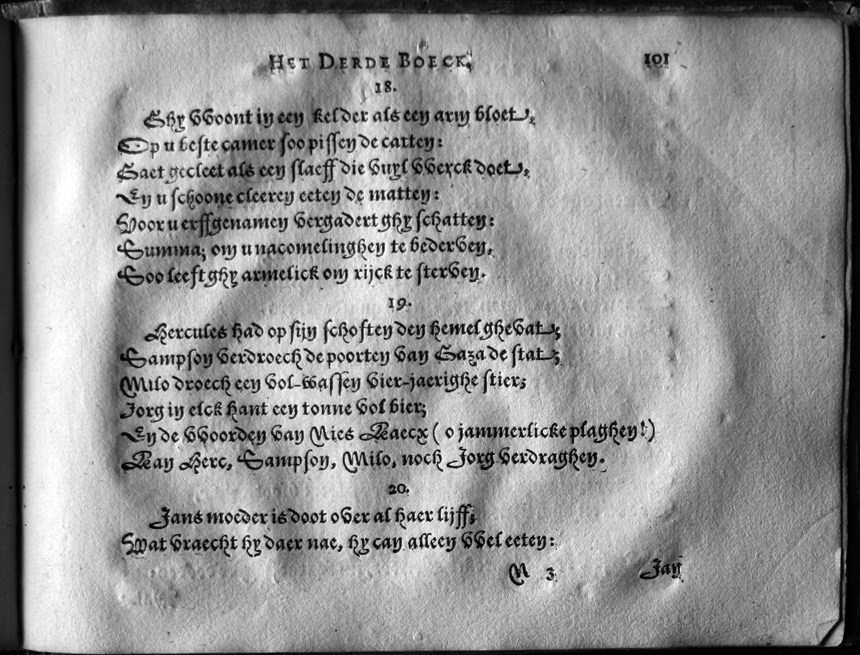 HET DERDE BOECK, 101
18.
Ghy VVoont in een kelder als een arm bloet,
Op u beste camer soo pissen de catten:
Gaet gecleet als een slaeff die vuyl VVerck doet,
En u schoone cleeren eeten de matten:
Voor u erffgenamen vergadert ghy schatten:
Summa; om u nacomelinghen te bederven,
Soo leeft ghy armelick om rijck te sterven.
19.
Hercules had op sijn schoften den hemel ghevat;
Sampson verdroech de poorten van Gaza de stat;
Milo droech een vol-wassen vier-jaerighe stier;
Jorg in elck hant een tonne vol bier;
En de VVoorden van Nies Raecx ( o jammerlicke plaghen!)
Kan Herc, Sampson, Milo, noch Jorg verdraghen.
20.
Jans moeder is doot over al haer lijff;
Wat vraecht hy daer nae, hy can alleen VVel eeten:
N 3 Jan